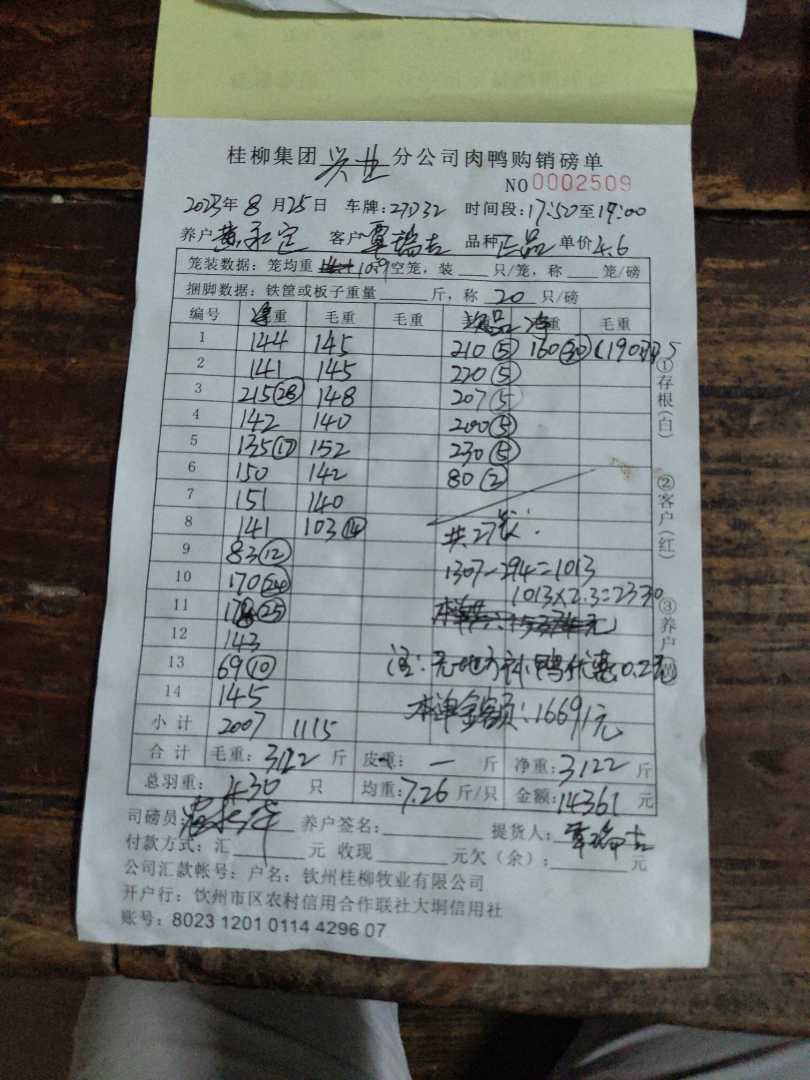 桂柳集团 兴业 分公司肉鸭购销磅单
NO 0002509
2023年 8 月 25 日 车牌:27D32 时间段:17:50至19:00
养户 黄 客户 覃瑞吉 品种 正品 单价 4.6
笼装数据:笼均重 10.9 空笼,装 只/笼,称 笼/磅
捆脚数据:铁筐或板子重量 斤,称 20 只/磅
编号 净重 毛重 毛重 品 净重 毛重
1 144 145 210⑤ 160㉚
2 141 145 220⑤
3 215㉘ 148 207⑤
4 142 140 200⑤
5 135⑰ 152 230⑤
6 150 142 80②
7 151 140
8 141 103⑭ 共27
9 83⑫
10 170㉔ 1307-294=1013
11 ㉕ 1013×2.3=2330
12 143
13 69⑩ 注:无地方补,鸭优惠0.2元
14 145 本单金额:16691元
小计 2007 1115
合计 毛重:3122 斤 皮重: — 斤 净重:3122 斤
总羽重:430 只 均重:7.26 斤/只 金额:14361 元
司磅员: 养户签名: 提货人:覃瑞吉
付款方式:汇 元 收现 元欠(余): 元
公司汇款帐号:户名:钦州桂柳牧业有限公司
开户行:钦州市区农村信用合作联社大垌信用社
账号:8023 1201 0114 4296 07
①存根(白)
②客户(红)
③养户